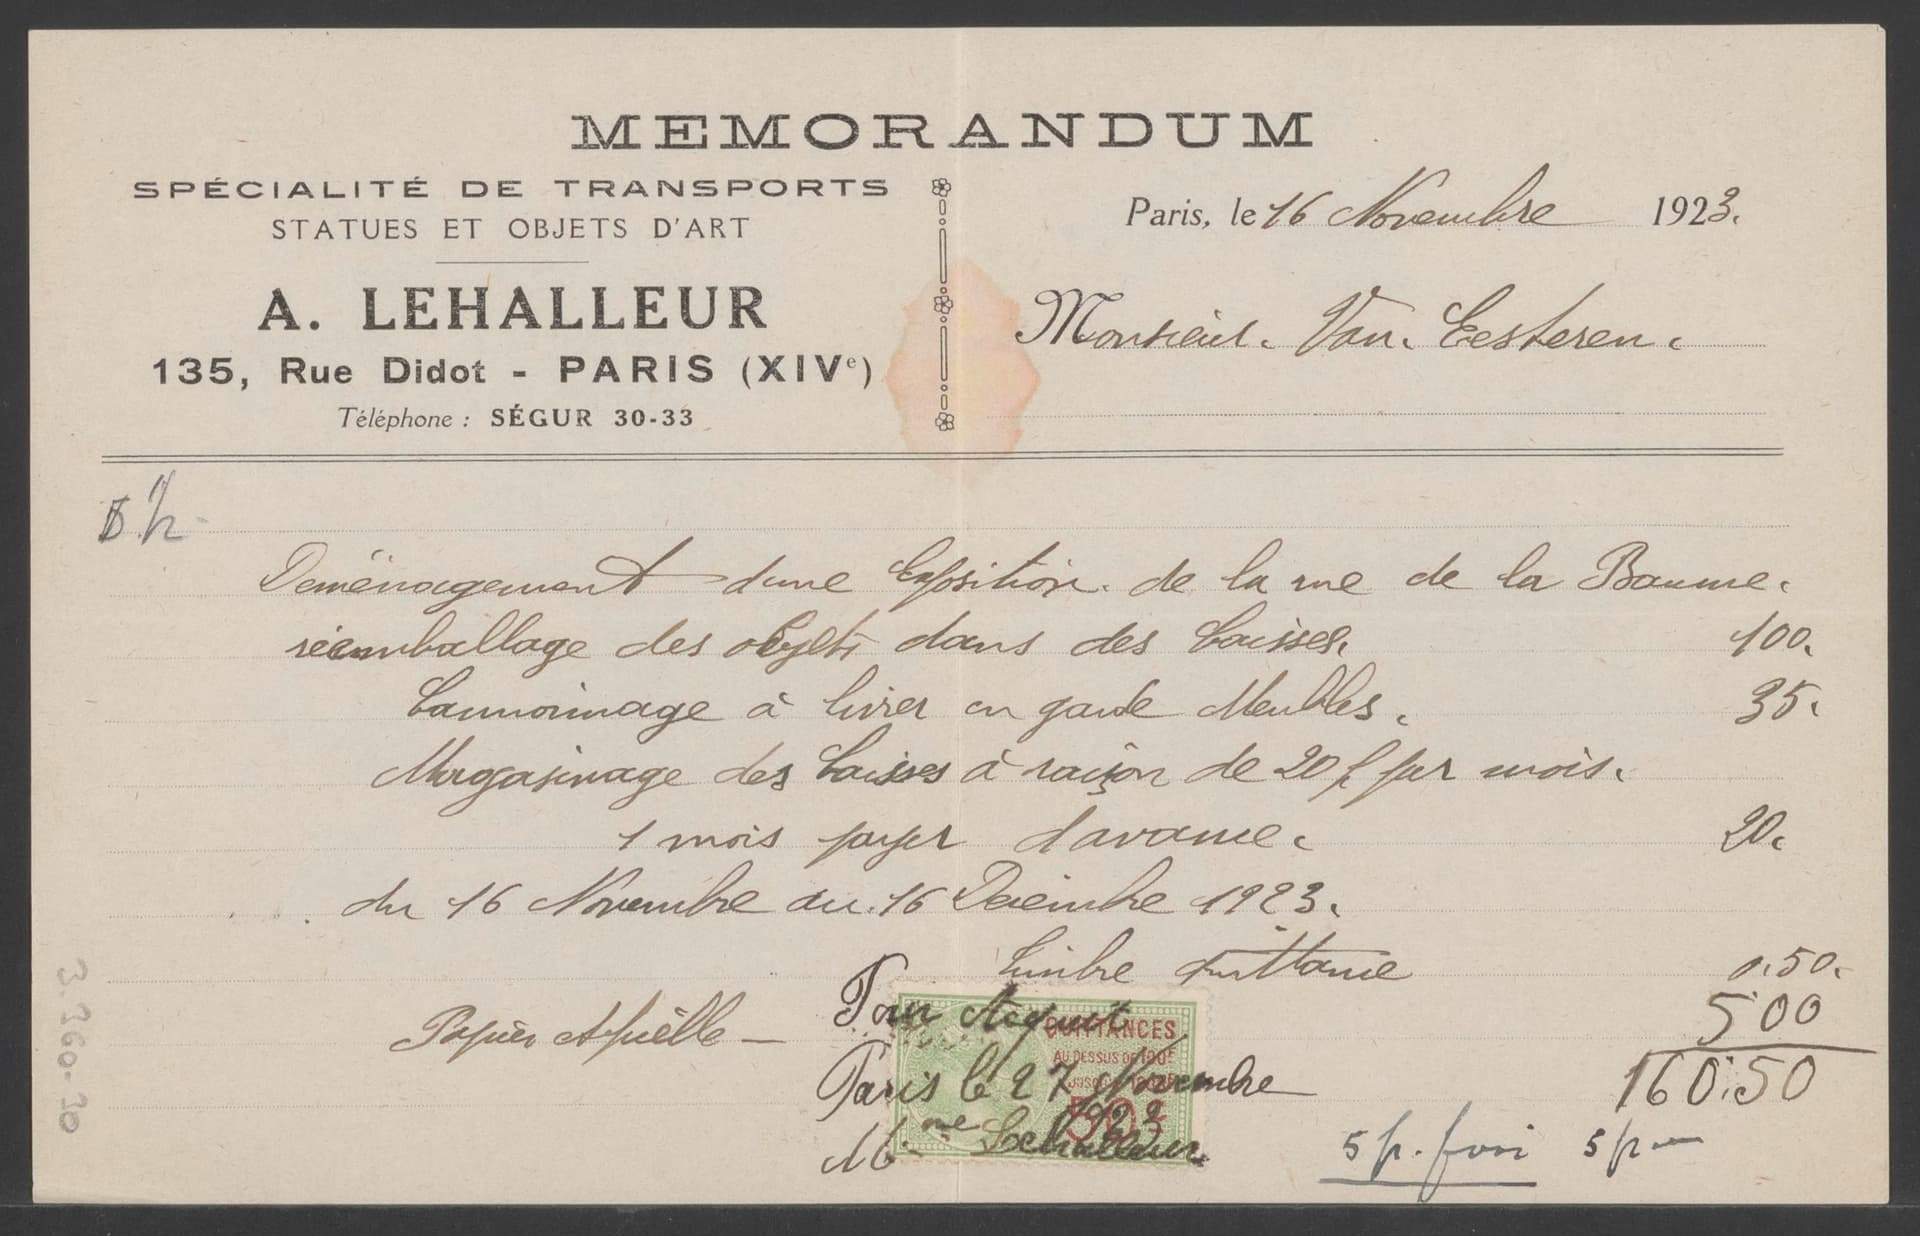 MEMORANDUM
SPÉCIALITÉ DE TRANSPORTS
STATUES ET OBJETS D'ART
A. LEHALLEUR
135, Rue Didot - PARIS (XIVe)
Téléphone : SÉGUR 30-33
Paris, le 16 Novembre 1923.
Monsieur. Van. Eesteren.
Deménagement dune Exposition. de la rue de la Baume.
réemballage des objets dans des Caisses. 100.
Camionnage à livrer en garde Meubles. 35.
Magasinage des Caisses à raison de 20 f par mois.
1 mois payer davance. 20.
du 16 Novembre au 16 Décembre 1923.
timbre quittance 0.50.
Papier 5 00
160.50
Pour Acquit
Paris le 27 Novembre
1923
Mme Lehalleur
QUITTANCES
AU DESSUS DE 100F
5 fr. 5 fr
3.260-20